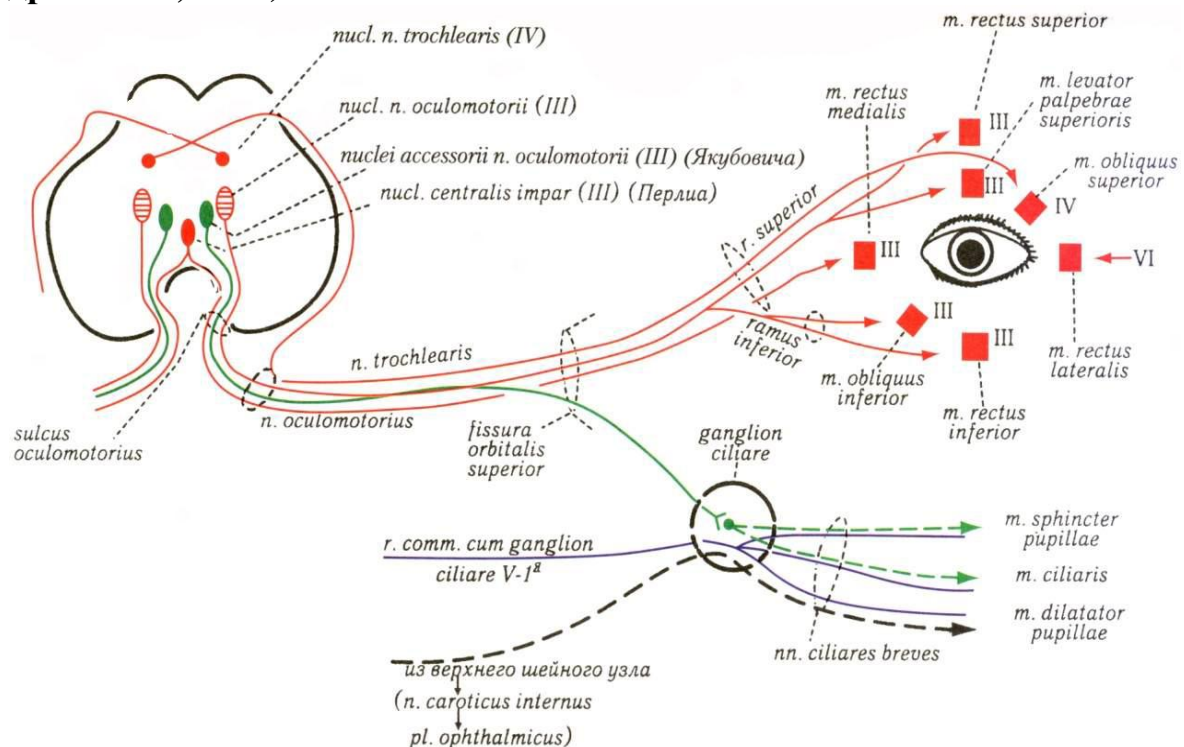 nucl. n. trochlearis (IV)
nucl. n. oculomotorii (III)
nuclei accessorii n. oculomotorii (III) (Якубовича)
nucl. centralis impar (III) (Перлиа)
m. rectus superior
m. rectus
medialis
m. levator
palpebrae
superioris
m. obliquus
superior
III
III
IV
III
VI
III
III
r. superior
ramus
inferior
m. obliquus
inferior
m. rectus
inferior
m. rectus
lateralis
n. trochlearis
n. oculomotorius
sulcus
oculomotorius
fissura
orbitalis
superior
ganglion
ciliare
r. comm. cum ganglion
ciliare V-1ª
m. sphincter
pupillae
m. ciliaris
m. dilatator
pupillae
nn. ciliares breves
из верхнего шейного узла
(n. caroticus internus
pl. ophthalmicus)